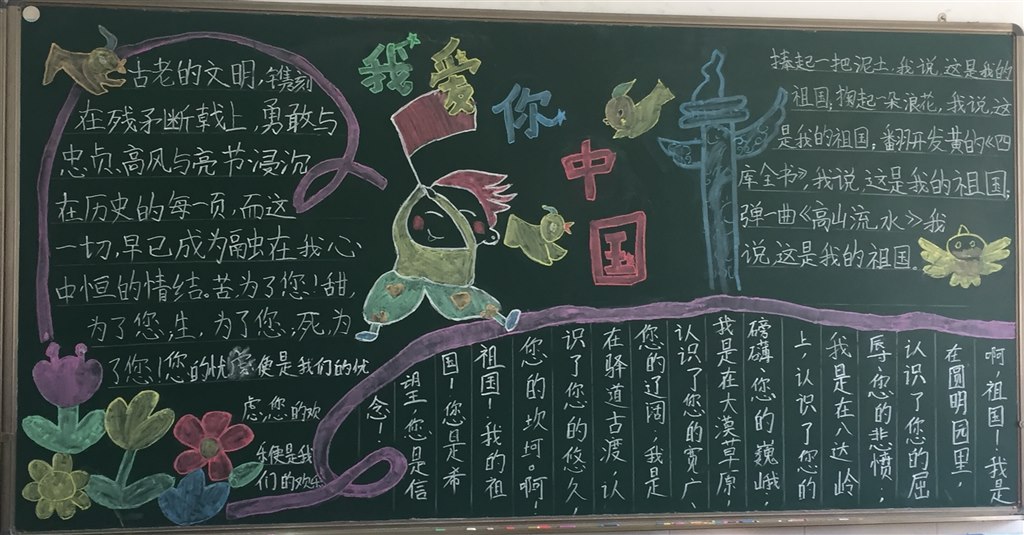 我爱你中国
古老的文明,镌刻
在残矛断戟上,勇敢与
忠贞、高风与亮节浸沉
在历史的每一页,而这
一切,早已成为融融在我心
中恒的情结。苦为了您!甜,
为了您,生,为了您,死,为
了您!您的忧便是我们的忧
虑,您的欢
便是我
们的欢乐
捧起一把泥土,我说,这是我的
祖国;掬起一朵浪花,我说,这
是我的祖国;翻开发黄的《四
库全书》,我说,这是我的祖国;
弹一曲《高山流水》我
说,这是我的祖国。
啊,祖国!我是
在圆明园里,
认识了您的屈
辱、您的悲愤;
我是在八达岭
上,认识了您的
磅礴、您的巍峨;
我是在大漠草原,
认识了您的宽广、
您的辽阔;我是
在驿道古渡,认
识了您的悠久,
您的坎坷。啊!
祖国!我的祖
国!您是希
望,您是信
念!